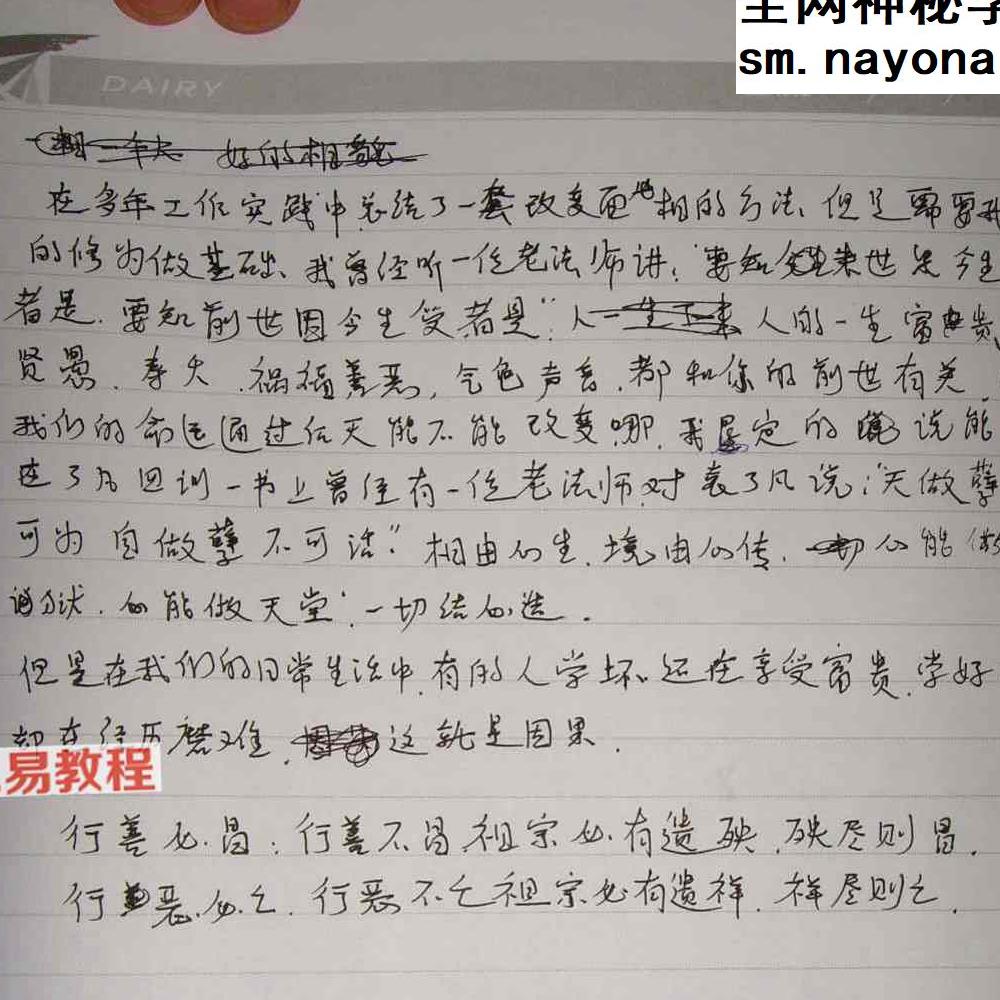 全网神秘学
sm.nayona
DAIRY
好的相
在多年工作实践中总结了一套改变面相的方法、但是需要我
的修为做基础、我曾经听一位老法师讲：要知来世果今生
者是.要知前世因今生受者是”.人一生下来人的一生富贵
贤愚、寿夭.祸福善恶,气色声音.都和你的前世有关.
我们的命运通过后天能不能改变哪.我坚定的说能
在了凡四训一书上曾经有一位老法师对袁了凡说：“天做孽
可为自做孽不可活”.相由心生.境由心传.一切心能做
地狱.心能做天堂’.一切结心造.
但是在我们的日常生活中.有的人学坏还在享受富贵.学好
却在经历磨难.这就是因果.
易教程
行善必昌：行善不昌.祖宗必有遗殃.殃尽则昌.
行恶必乏.行恶不乏祖宗必有遗祥.祥尽则乏.